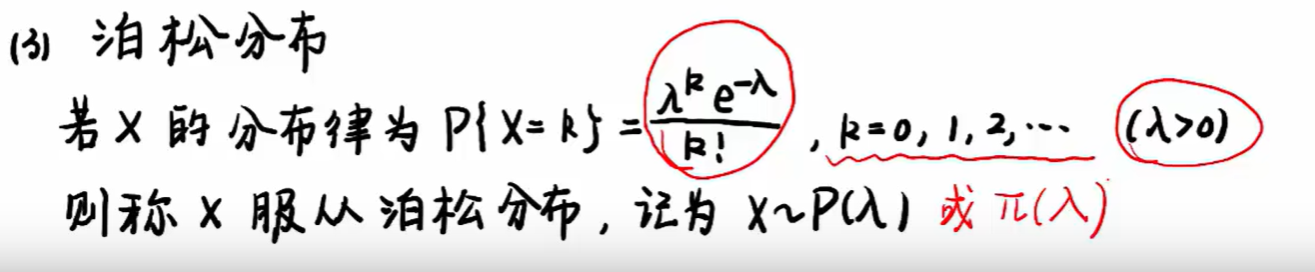 (3) 泊松分布
若 X 的分布律为 P{X=k} = λ^k e^{-λ} / k! , k=0, 1, 2, ⋯ (λ>0)
则称 X 服从泊松分布, 记为 X~P(λ) 或 π(λ)